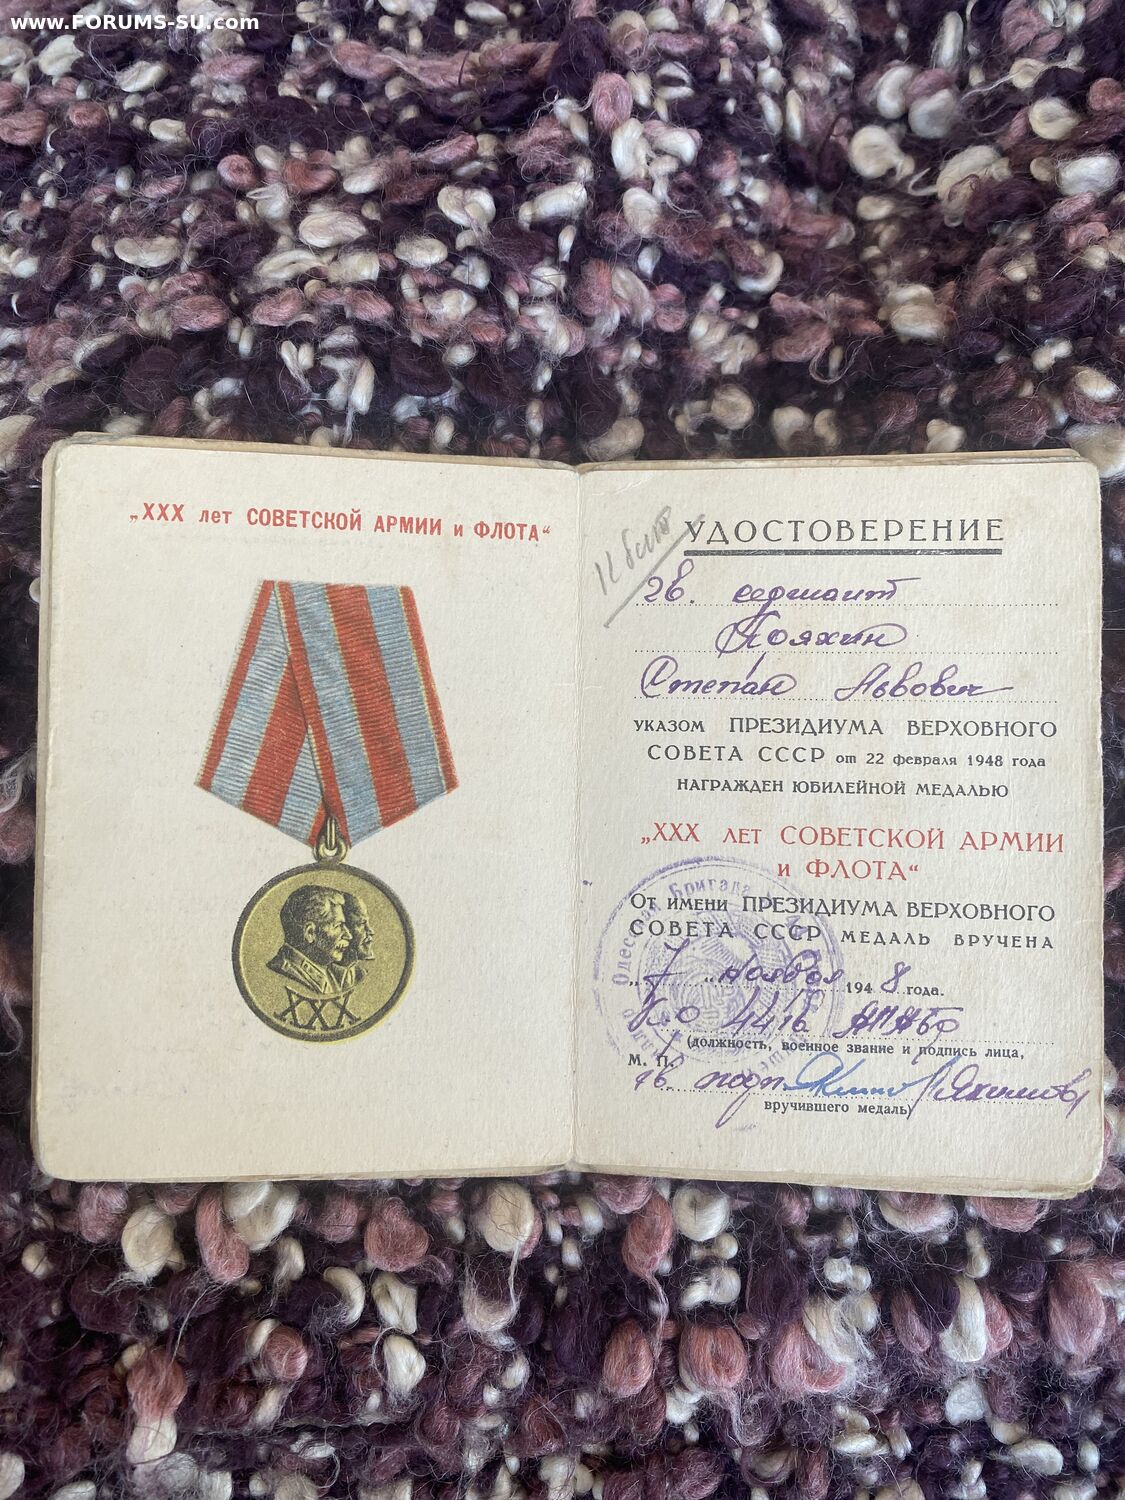 www.FORUMS-SU.com
„XXX лет СОВЕТСКОЙ АРМИИ и ФЛОТА“
XXX
УДОСТОВЕРЕНИЕ
гв. сержант
Пояхин
Степан Львович
УКАЗОМ ПРЕЗИДИУМА ВЕРХОВНОГО
СОВЕТА СССР от 22 февраля 1948 года
НАГРАЖДЕН ЮБИЛЕЙНОЙ МЕДАЛЬЮ
„XXX ЛЕТ СОВЕТСКОЙ АРМИИ
и ФЛОТА“
ОТ ИМЕНИ ПРЕЗИДИУМА ВЕРХОВНОГО
СОВЕТА СССР МЕДАЛЬ ВРУЧЕНА
„7„ ноября 1948 года.
44 гв
(должность, военное звание и подпись лица,
М. П.
гв. подп. Якимов
вручившего медаль)
Бригада